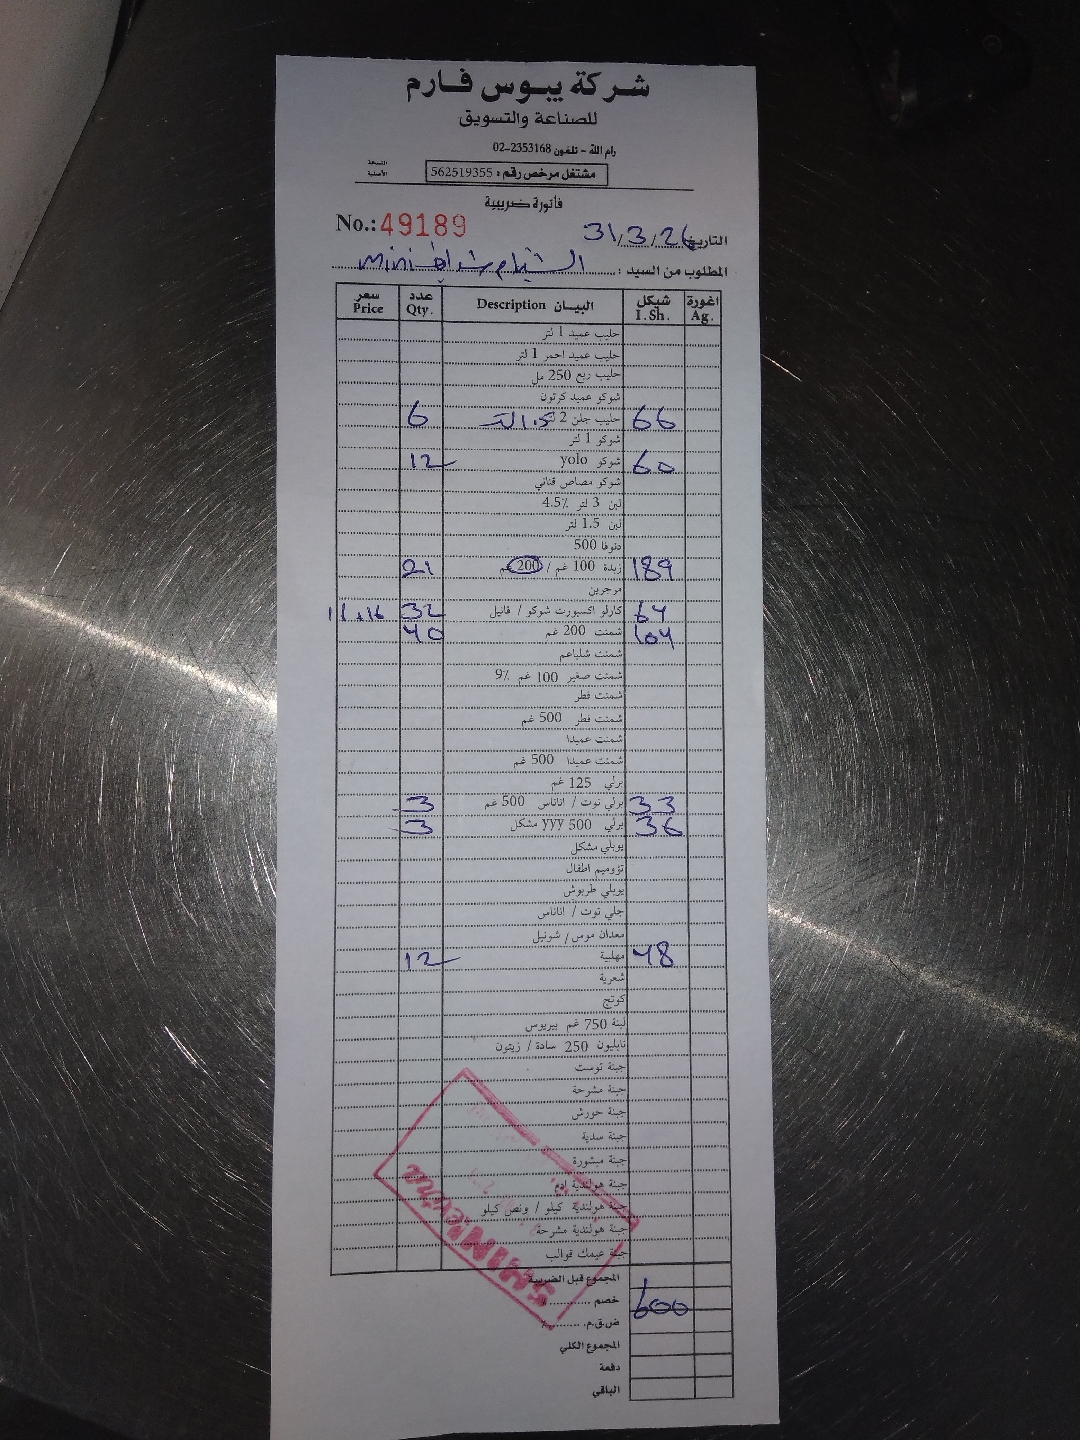 شركة يبوس فارم
للصناعة والتسويق
رام الله - تلفون 2353168-02
مشتغل مرخص رقم: 562519355
النسخة الأصلية
فاتورة ضريبية
No.: 49189
التاريخ 31/3/26
المطلوب من السيد: mini
سعر Price عدد Qty. البيــان Description شيكل I.Sh. اغورة Ag.
حليب عميد 1 لتر
حليب عميد احمر 1 لتر
حليب ربع 250 مل
شوكو عميد كرتون
6 حليب جلن 2 لتر 1.5 لتر 66
شوكو 1 لتر
12 شوكو yolo 60
شوكو مصاص قناني
لبن 3 لتر 4.5%
لبن 1.5 لتر
دنوفا 500
21 زبدة 100 غم / 200 غم 189
مرجرين
16 x 16 32 كارلو اكسبورت شوكو / فانيل 64
40 شمنت 200 غم 104
شمنت شلباعم
شمنت صغير 100 غم 9%
شمنت فطر
شمنت فطر 500 غم
شمنت عميدا
شمنت عميدا 500 غم
برلي 125 غم
3 برلي توت / اناناس 500 غم 33
3 برلي 500 yyy مشكل 36
يوبلي مشكل
تزوميم اطفال
يوبلي طربوش
جلي توت / اناناس
معدان موس / شونيل
12 مهلبية 48
شعرية
كوتج
لبنة 750 غم بيريوس
نابليون 250 سادة / زيتون
جبنة توست
جبنة مشرحة
جبنة حورش
جبنة سدية
جبنة مبشورة
جبنة هولندية إدم
جبنة هولندية كيلو / ونص كيلو
جبنة هولندية مشرحة
جبنة عيمك قوالب
المجموع قبل الضريبة
خصم ........... % 600
ض.ق.م. .......... %
المجموع الكلي
دفعة
الباقي